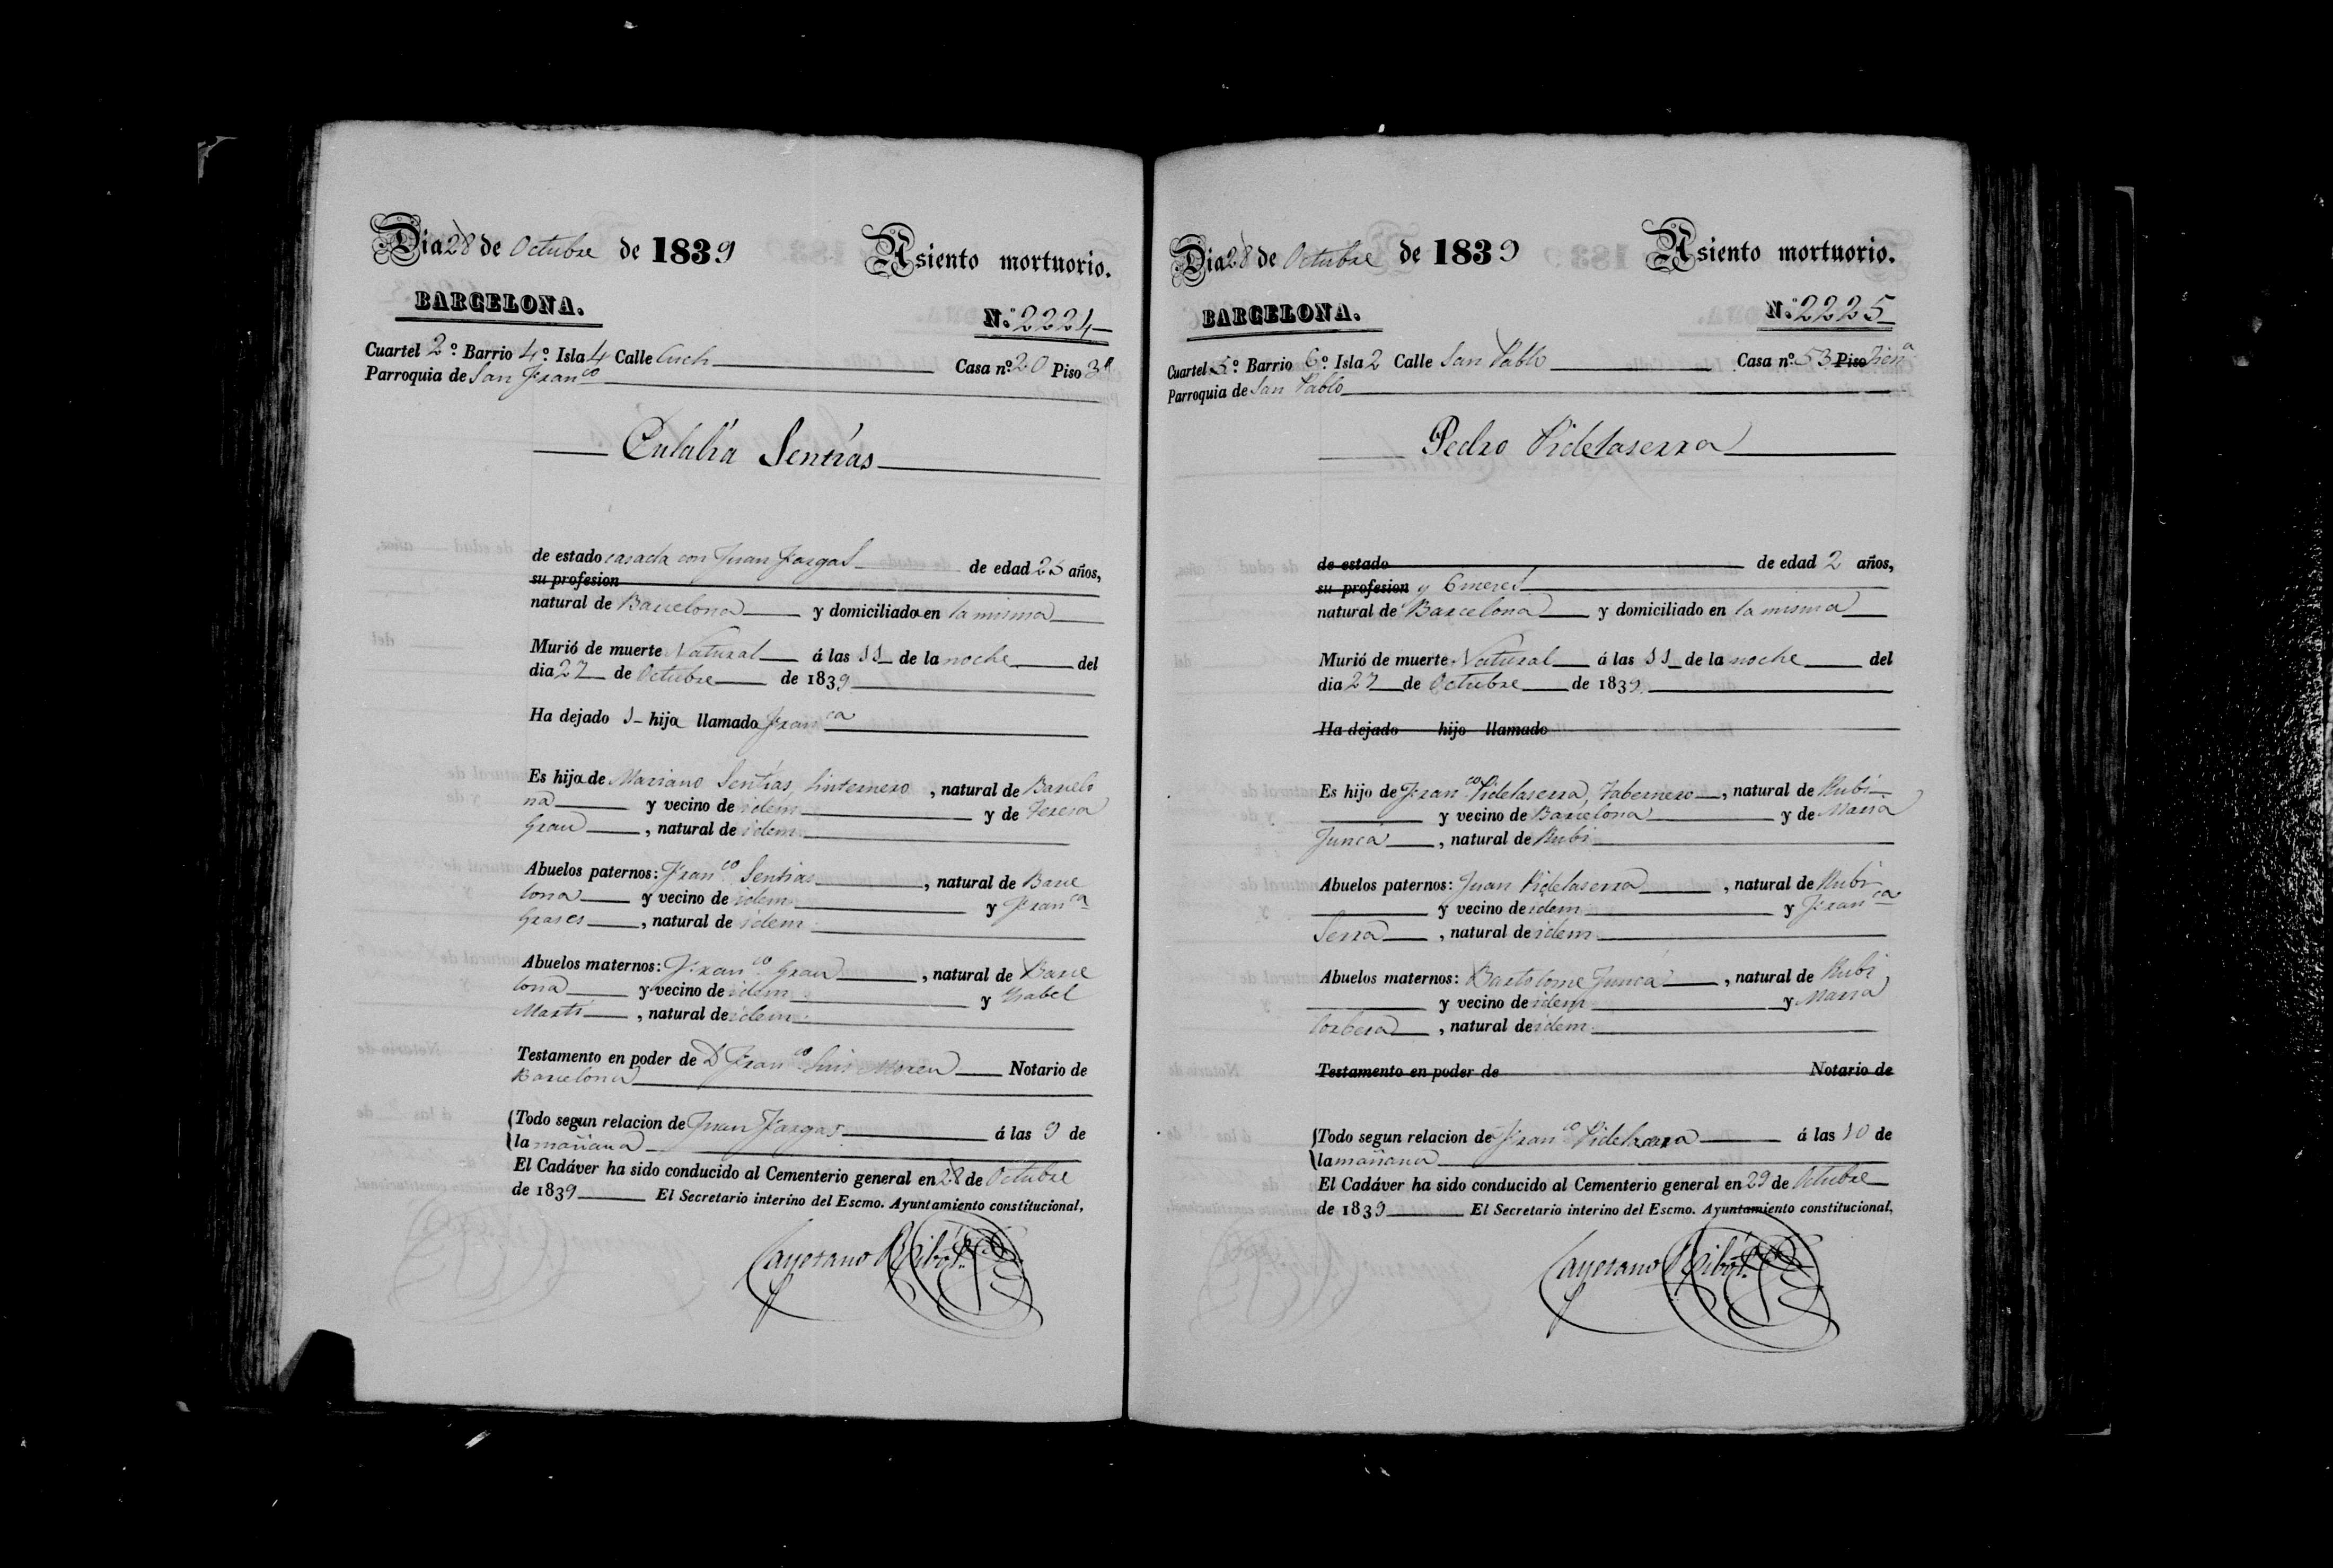 Dia 28 de Octubre de 1839 Asiento mortuorio.
BARCELONA. N.º 2224
Cuartel 2º Barrio 4º Isla 4 Calle Casa nº 20 Piso 3º
Parroquia de San Franco
Eulalia Sentias
de estado casada con Juan Fargas de edad 25 años,
su profesion
natural de Barcelona y domiciliada en la misma
Murió de muerte Natural á las 11 de la noche del
dia 27 de Octubre de 1839
Ha dejado 1 hija llamado Franca
Es hija de Mariano Sentias, Linternero, natural de Barcelo
na y vecino de idem y de Teresa
Grau, natural de idem
Abuelos paternos: Franco Sentias, natural de Barce
lona y vecino de idem y Franca
Grases, natural de idem
Abuelos maternos: Franco Grau, natural de Barce
lona y vecino de idem y Ysabel
Marti, natural de idem
Testamento en poder de D Franco Notario de
Barcelona
(Todo segun relacion de Juan Fargas á las 9 de
la mañana
El Cadáver ha sido conducido al Cementerio general en 28 de Octubre
de 1839 El Secretario interino del Escmo. Ayuntamiento constitucional,
Cayetano Ribót
Dia 28 de Octubre de 1839 Asiento mortuorio.
BARCELONA. N.º 2225
Cuartel 5º Barrio 6º Isla 2 Calle San Pablo Casa nº 53 Piso Tiena
Parroquia de San Pablo
Pedro Pidelaserra
de estado de edad 2 años,
su profesion y 6 meses
natural de Barcelona y domiciliado en la misma
Murió de muerte Natural á las 11 de la noche del
dia 27 de Octubre de 1839
Ha dejado hijo llamado
Es hijo de Franco Pidelaserra, Tabernero, natural de Rubi
y vecino de Barcelona y de Maria
Juncá, natural de Rubi
Abuelos paternos: Juan Pidelaserra, natural de Rubi
y vecino de idem y Franca
Serra, natural de idem
Abuelos maternos: Bartolome Juncá, natural de Rubi
y vecino de idem y Maria
Corbera, natural de idem
Testamento en poder de Notario de
(Todo segun relacion de Franco Pidelaserra á las 10 de
la mañana
El Cadáver ha sido conducido al Cementerio general en 29 de Octubre
de 1839 El Secretario interino del Escmo. Ayuntamiento constitucional,
Cayetano Ribót